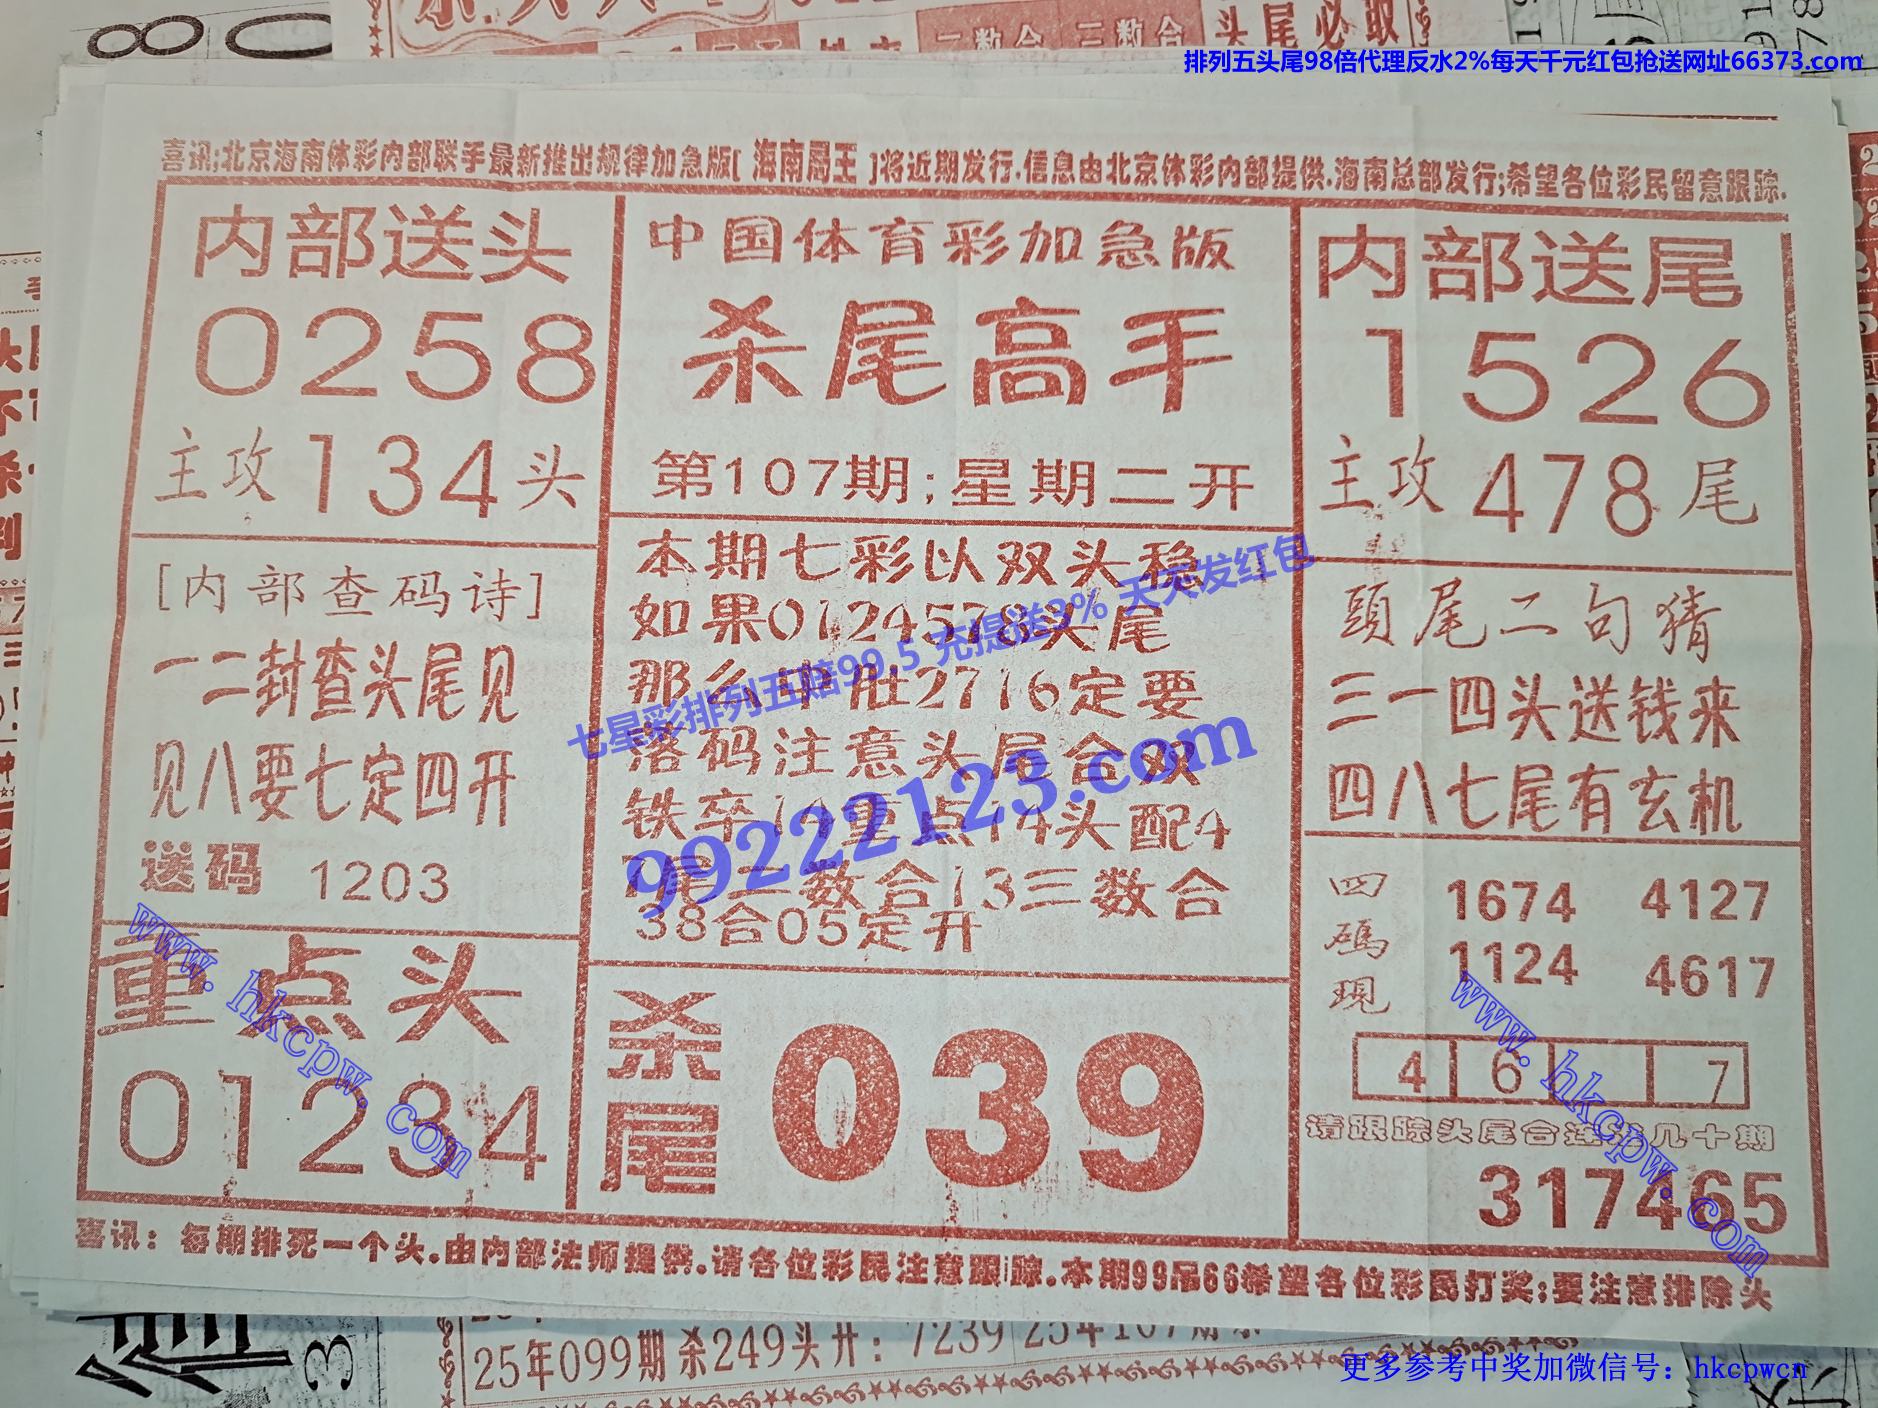 二数合 三数合 头尾必取
排列五头尾98倍代理反水2%每天千元红包抢送网址66373.com
喜讯;北京海南体彩内部联手最新推出规律加急版[海南局王]将近期发行.信息由北京体彩内部提供.海南总部发行;希望各位彩民留意跟踪.
内部送头
0258
主攻134头
[内部查码诗]
一二封查头尾见
见八要七定四开
送码 1203
重点头
01234
中国体育彩加急版
杀尾高手
第107期;星期二开
本期七彩以双头稳
如果0124578头尾
那么中肚2716定要
落码注意头尾合双
铁卒14重点14头配4
7尾二数合13三数合
38合05定开
杀尾
039
内部送尾
1526
主攻478尾
頭尾二句猜
三一四头送钱来
四八七尾有玄机
四碼現
1674 4127
1124 4617
4 6 7
请跟踪头尾合连准几十期
317465
喜讯：每期排死一个头.由内部法师提供.请各位彩民注意跟踪.本期99吊66希望各位彩民打奖;要注意排除头
七星彩排列五赔99.5 充提送3% 天天发红包
99222123.com
www.hkcpw.com
www.hkcpw.com
25年099期 杀249头开：7239
更多参考中奖加微信号：hkcpwcn